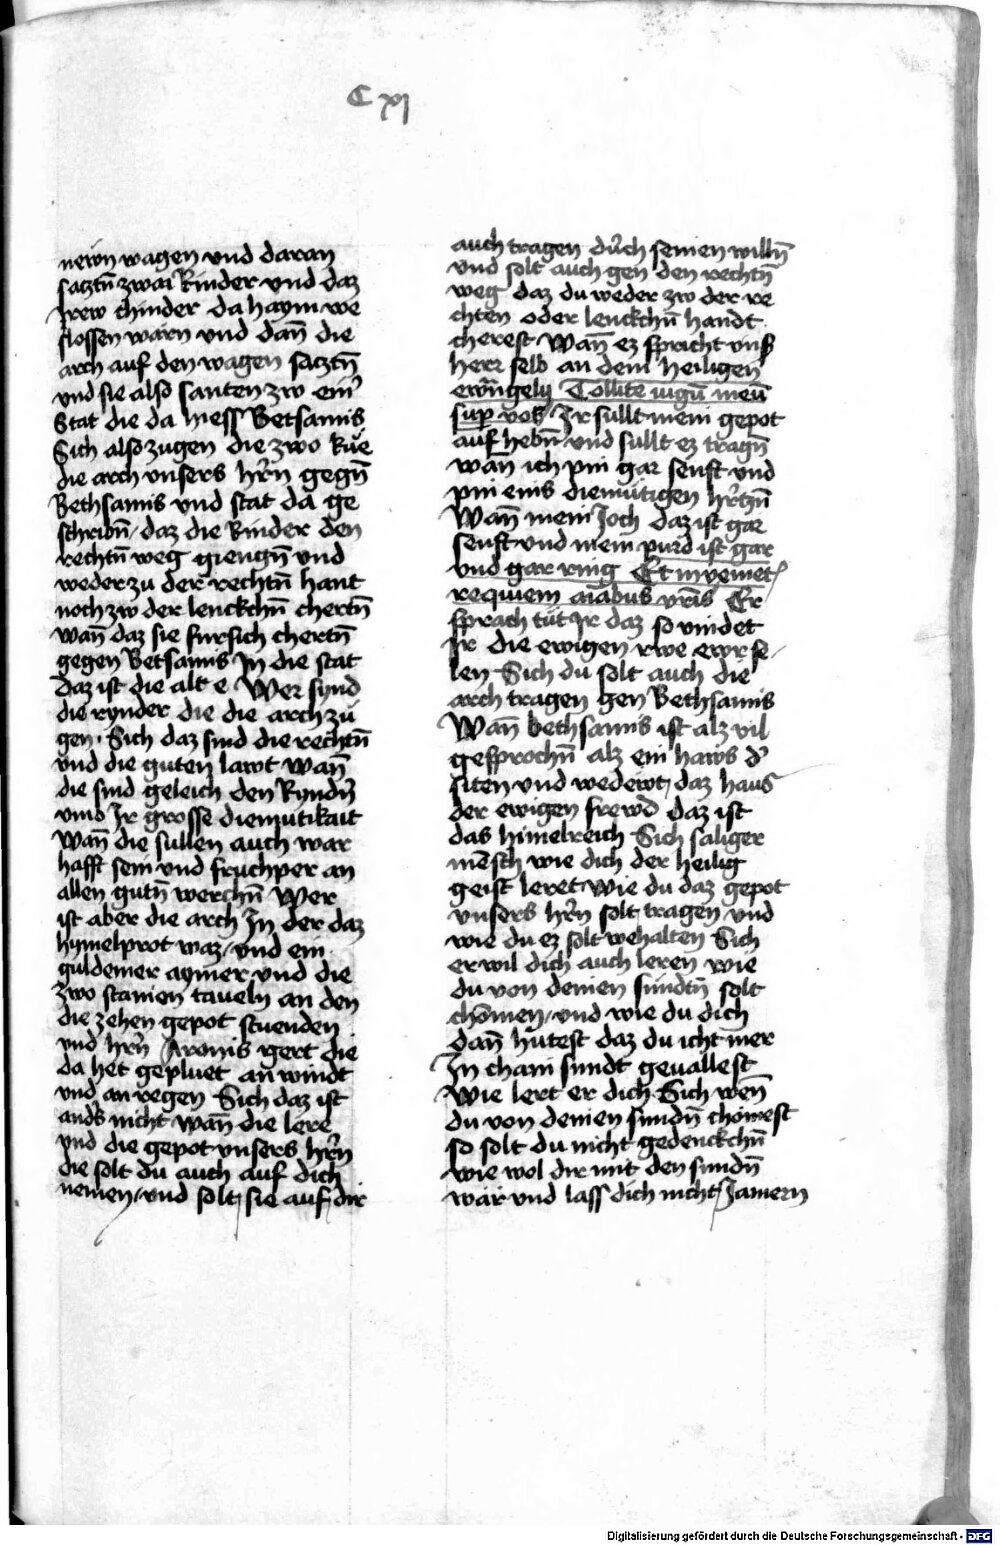 C xj
newn wagen vnd daran
sacztn̄ zwai Rinder vnd daz
Jrew chinder da haym we
slossen warn vnd dan̄ die
arch auf den wagen sacztn̄
vnd sie also santen zw eīr
Stat die da hiess Betsamis
Sich also zugen die zwo kue
die arch vnsers hr̄n gegn̄
Bethsamis vnd stat da ge
schribn̄ / daz die Rinder den
rechtn̄ weg giengn̄ vnd
weder zu der rechtn̄ hant
noch zw der lenckchn̄ chertn̄
wan̄ daz sie fürsich chertn̄
gegen Betsamis Jn die stat
Daz ist die alt e Wer synd
die rynder die die arch zu
gen · Sich daz sind die rechtn̄
vnd die guten lawt wan̄
die sind geleich den Rynd'n
vmb Jr grosse diemutikait
Wan̄ die sullen auch war
hafft sein vnd fruchper an
allen gutn̄ werchn̄ Wer
ist aber die arch Jn der daz
hymelprot waz / vnd ein
guldeiner aymer vnd die
zwo stainen taueln an den
die zehen gepot stuenden
vnd hr̄n Aronis gert die
da het gepluet an windt
vnd an regen Sich daz ist
and's nicht wan̄ die lere
vnd die gepot vnsers hr̄n
die solt du auch auf dich
nemen / vnd solt sie auf dir
auch tragen durch seinen willn̄
vnd solt auch gen den rechtn̄
weg daz du weder zw der re
chten oder lenckchn̄ handt
cherest Wan̄ ez spricht vns
herr selb an dem heiligen
ewn̄gelij Tollite iugū meū
sup̄ vos Jr sullt mein gepot
auf hebn̄ vnd sullt ez tragn̄
wan̄ ich pin gar senft vnd
pin eins diemütigen hr̄tzn̄
Wan̄ mein Joch daz ist gar
senft vnd mein purd ist gar
vnd gar ring Et inueniet'
requiem aīabus vr̄is Er
sprach tüt Jr daz so vindet
Jr die ewigen rwe ewr se /
len Sich du solt auch die
arch tragen gen Bethsamis
Wan̄ bethsamis ist alz vil
gesprochn̄ alz ein haws d'
siten vnd wedewt / daz haus
der ewigen frewd daz ist
das himelreich Sich saliger
mēsch wie dich der heilig
geist leret wie du daz gepot
vnsers hr̄n solt tragen vnd
wie du ez solt wehalten Sich
er wil dich auch leren wie
du von deinen sündtn̄ solt
chōmen / vnd wie du dich
dan̄ hütest daz du icht mer
Jn chain sündt geuallest
Wie lert er dich Sich wen̄
du von deinen sundn̄ chömest
so solt du nicht gedenckchn̄
wie wol dir mit den sundn̄
wär vnd lass dich nicht Jamern
Digitalisierung gefördert durch die Deutsche Forschungsgemeinschaft - DFG